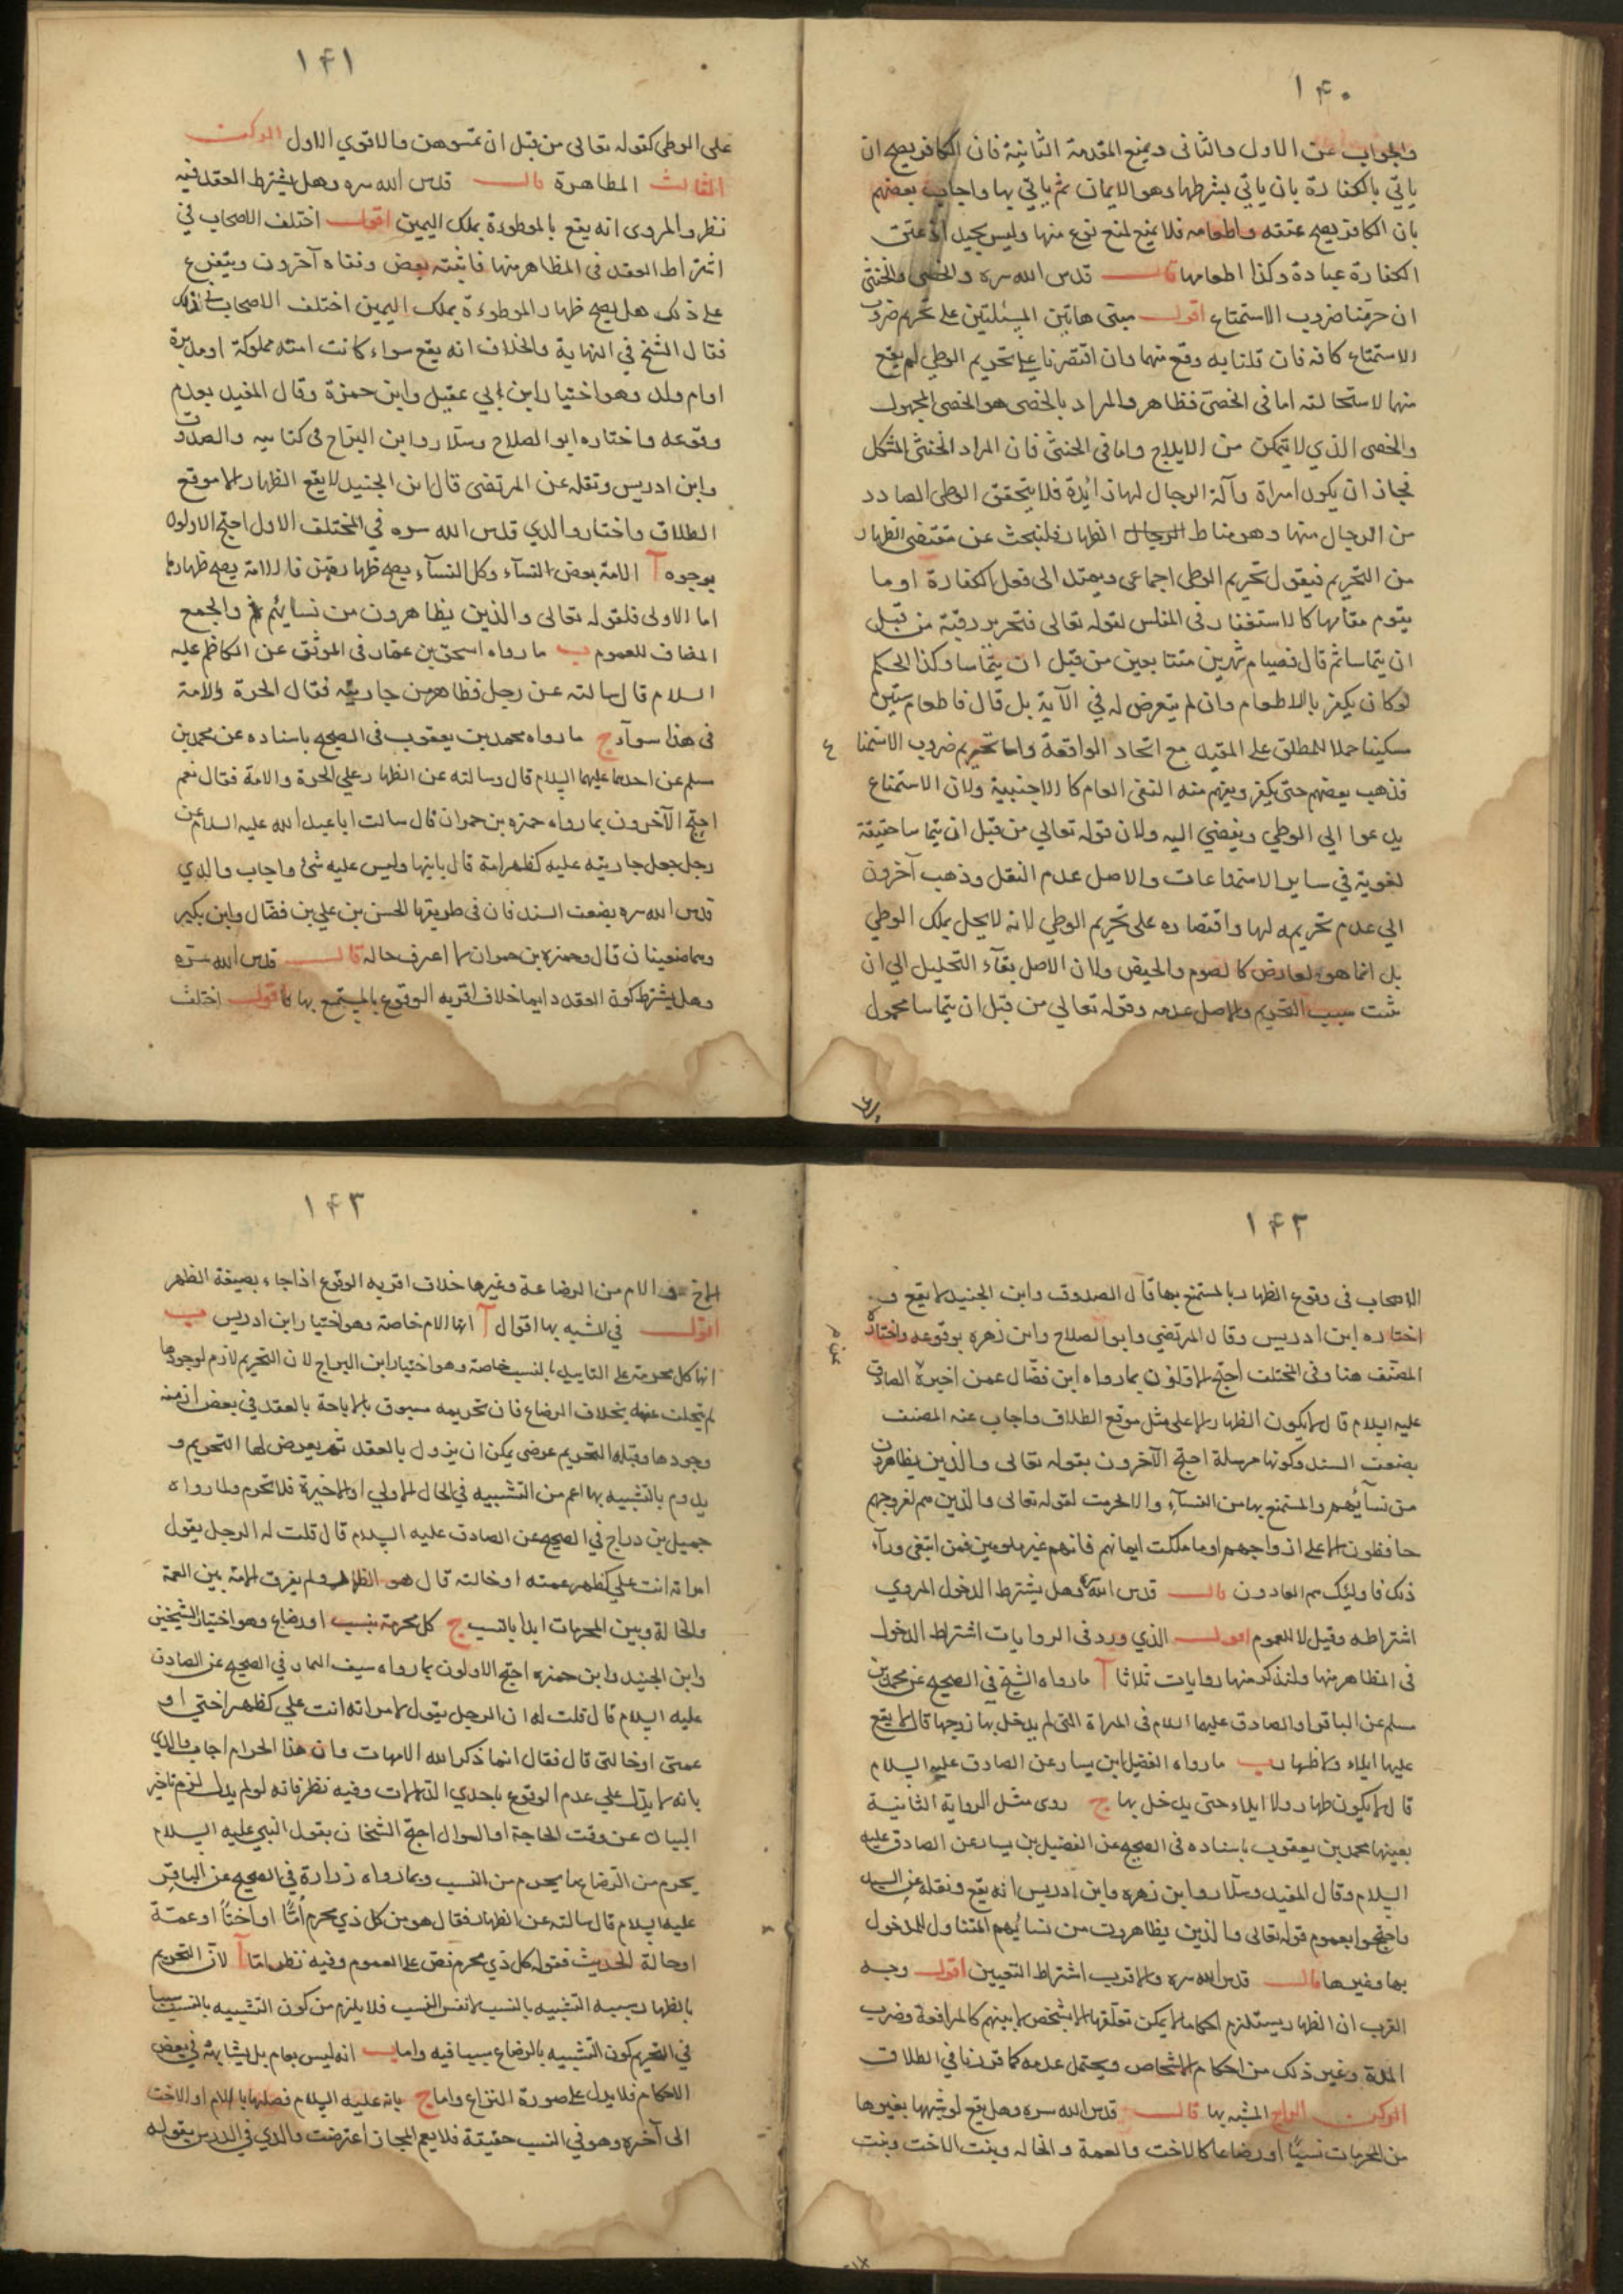 ١۴٠
والجواب عن الاول والثانى ويمنع المقدمة الثانية فان الكافر يصح ان
ياتي بالكفارة بان ياتي بشرطها وهو الايمان ثم ياتي بها واجاب بعضهم
بان الكافر يصح عتقه واطعامه فلا يمنع لمنع نوع منها وليس بجيد اذ عتق
الكفارة عبادة وكذا اطعامها قال قدس الله سره والخصى والخنثى
ان حرمنا ضروب الاستمتاع اقول مبنى هاتين المسئلتين على تحريم ضروب
الاستمتاع كافة فان قلنا به وقع منهما وان اقتصرنا على تحريم الوطى لم يقع
منهما لاستحالته اما فى الخصى فظاهر والمراد بالخصى هو الخصى المجبوب
والخصى الذي لا يتمكن من الايلاج واما فى الخنثى فان المراد الخنثى المشكل
فجاز ان يكون امراة وآلة الرجال لها زائدة فلا يتحقق الوطى الصادر
من الرجال منها وهو مناط الظهار فلنبحث عن مقتضى الظهار
من التحريم فيقول تحريم الوطى اجماعى ويمتد الى فعل الكفارة او ما
يقوم مقامها كالاستغفار فى المفلس لقوله تعالى فتحرير رقبة من قبل
ان يتماسا ثم قال فصيام شهرين متتابعين من قبل ان يتماسا وكذا الحكم
لو كان يكفر بالاطعام وان لم يتعرض له في الآية بل قال فاطعام ستين
مسكينا حملا للمطلق على المقيد مع اتحاد الواقعة واما تحريم ضروب الاستمتا ع
فذهب بعضهم حتى يكفر ويفهم منه النفى العام كالاجنبية ولان الاستمتاع
يدعوا الي الوطي ويفضي اليه ولان قوله تعالي من قبل ان يتماسا حقيقة
لغوية في ساير الاستمتاعات والاصل عدم النقل وذهب آخرون
الي عدم تحريمه لها واقتصاره على تحريم الوطي لانه لا يحل بملك الوطي
بل انما هو لعارض كالصوم والحيض ولان الاصل بقآء التحليل الي ان
يثبت سبب التحريم والاصل عدمه وقوله تعالي من قبل ان يتماسا محمول
١۴١
على الوطى كقوله تعالى من قبل ان تمسوهن والاقوي الاول الركن
الثالث المظاهرة قال قدس الله سره وهل يشترط العقد فيه
نظر والمروى انه يقع بالموطوءة بملك اليمين اقول اختلف الاصحاب في
اشتراط العقد فى المظاهر منها فاثبته بعض ونفاه آخرون ويتفرع
على ذلك هل يصح ظهار الموطوءة بملك اليمين اختلف الاصحاب في ذلك
فقال الشيخ في النهاية والخلاف انه يقع سواء كانت امته مملوكة او مدبرة
او ام ولد وهو اختيار ابن ابي عقيل وابن حمزة وقال المفيد بعدم
وقوعه واختاره ابو الصلاح وسلار وابن البراج فى كتابيه والصدوق
وابن ادريس ونقله عن المرتضى قال ابن الجنيد لا يقع الظهار الا موقع
الطلاق واختار والدي قدس الله سره في المختلف الاول احتج الاولون
بوجوه آ الامة بعض النسآء وكل النسآء يصح ظهارهن فالامة يصح ظهارها
اما الاولى فلقوله تعالى والذين يظاهرون من نسائهم والجمع
المضاف للعموم ب ما رواه اسحق بن عمار فى الموثق عن الكاظم عليه
السلام قال سالته عن رجل ظاهر من جاريته فقال الحرة والامة
فى هذا سوآء ج ما رواه محمد بن يعقوب فى الصحيح باسناده عن محمد بن
مسلم عن احدهما عليهما السلام قال وسالته عن الظهار على الحرة والامة فقال نعم
احتج الآخرون بما رواه حمزه بن حمران قال سالت ابا عبد الله عليه السلام عن
رجل جعل جاريته عليه كظهر امه قال ياتيها وليس عليه شئ واجاب والدي
قدس الله سره بضعف السند فان فى طريقها الحسن بن علي بن فضال وابن بكير
وهما ضعيفان قال وحمزه بن حمران لا اعرف حاله قال قدس الله سره
وهل يشترط كون العقد دايما خلاف اقربه الوقوع بالمستمتع بها اقول اختلف
١۴٢
الاصحاب فى وقوع الظهار بالمستمتع بها قال الصدوق وابن الجنيد لا يقع و
اختاره ابن ادريس وقال المرتضي وابو الصلاح وابن زهره بوقوعه واختاره
المصنف هنا وفى المختلف احتج الاولون بما رواه ابن فضال عمن اخبره الصادق
عليه السلام قال لا يكون الظهار الا على مثل موقع الطلاق واجاب عنه المصنف
بضعف السند وكونها مرسلة احتج الآخرون بقوله تعالى والذين يظاهرون
من نسآئهم والمستمتع بها من النسآء والا لحرمت لقوله تعالى والذين هم لفروجهم
حافظون الا على ازواجهم او ما ملكت ايمانهم فانهم غير ملومين فمن ابتغى ورآء
ذلك فاولئك هم العادون قال قدس الله سره وهل يشترط الدخول المروي
اشتراطه وقيل لا للعموم اقول الذي ورد فى الروايات اشتراط الدخول
فى المظاهر منها ولنذكر منها روايات ثلاثا آ ما رواه الشيخ في الصحيح عن محمد بن
مسلم عن الباقر او الصادق عليهما السلام فى المراة التى لم يدخل بها زوجها قال لا يقع
عليها ايلاء ولا ظهار ب ما رواه الفضيل ابن يسار عن الصادق عليه السلام
قال لا يكون ظهار ولا ايلاء حتى يدخل بها ج روى مثل الرواية الثانية
بعينها محمد بن يعقوب باسناده فى الصحيح عن الفضيل بن يسار عن الصادق عليه
السلام وقال المفيد وسلار وابن زهره وابن ادريس انه يقع ونقله عن السيد
واحتجوا بعموم قوله تعالى والذين يظاهرون من نسائهم المتناول للمدخول
بها وغيرها قال قدس الله سره والاقرب اشتراط التعيين اقول وجه
القرب ان الظهار يستلزم احكاما لا يمكن تعلقها الا بشخص لا بينهم كالمرافعة وضرب
المدة وغير ذلك من احكام الاشخاص ويحتمل عدمه كما قررنا في الطلاق
الركن الرابع المشبه بها قال قدس الله سره وهل يقع لو شبهها بغيرها
من المحرمات نسبًا او رضاعا كالاخت والعمة والخاله وبنت الاخت وبنت
١۴٣
الاخ والام من الرضاعة وغيرها خلاف اقربه الوقوع اذا جاء بصيغة الظهر
اقول في المشبه بها اقوال آ انها الام خاصة وهو اختيار ابن ادريس ب
انها كل محرمة على التابيد بالنسب خاصة وهو اختيار ابن البراج لان التحريم لازم لوجودها
لم تنفك عنه بخلاف الرضاع فان تحريمه مسبوق بالاباحة بالعقد في بعض ازمنه
وجودها وقبله التحريم عرضى يمكن ان يزول بالعقد ثم يعرض لها التحريم و
يدوم بالتشبيه بها اعم من التشبيه في الحال الاولي او الاخيرة فلا تحرم ولما رواه
جميل بن دراج في الصحيح عن الصادق عليه السلام قال قلت له الرجل يقول
امراته انت علي كظهر عمته او خالته قال هو الظهار ولم يفرق الامة بين العمة
والخالة وبين المحرمات ابدا بالنسب ج كل محرمة بنسب او رضاع وهو اختيار الشيخين
وابن الجنيد وابن حمزه احتج الاولون بما رواه سيف التمار في الصحيح عن الصادق
عليه السلام قال قلت له ان الرجل يقول لامراته انت علي كظهر اختي او
عمتى او خالتى قال فقال انما ذكر الله الامهات وان هذا الحرام اجاب والدي
بانه لا يدل علي عدم الوقوع باحدي الدلالات وفيه نظر فانه لو لم يدل لزم تاخير
البيان عن وقت الحاجة او السوال احتج الشيخان بقول النبي عليه السلام
يحرم من الرضاع ما يحرم من النسب وبما رواه زرارة في الصحيح عن الباقر
عليه السلام قال سالته عن الظهار فقال هو من كل ذي محرم أمًّا او اختاً او عمة
او خالة الحديث فقوله كل ذي محرم نص على العموم وفيه نظر اما آ لان التحريم
بالظهار بسببه التشبيه بالنسب لا نفس النسب فلا يلزم من كون التشبيه بالنسب سببا
في التحريم كون التشبيه بالرضاع سببا فيه واما ب انه ليس بعام بل يشابهه في بعض
الاحكام فلا يدل على صورة النزاع واما ج بانه عليه السلام فصلها بالام او الاخت
الى آخره وهو في النسب حقيقة فلا يعم المجاز اعترضت والدي في الدرس بقوله